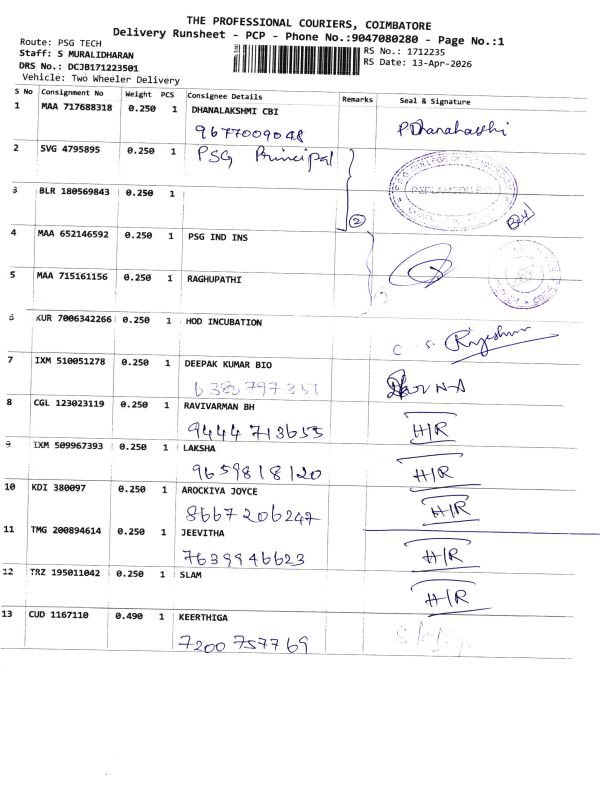 THE PROFESSIONAL COURIERS, COIMBATORE
Delivery Runsheet - PCP - Phone No.:9047080280 - Page No.:1
Route: PSG TECH
Staff: S MURALIDHARAN
DRS No.: DCJB171223501
Vehicle: Two Wheeler Delivery
RS No.: 1712235
RS Date: 13-Apr-2026
S No Consignment No Weight PCS Consignee Details Remarks Seal & Signature
1 MAA 717688318 0.250 1 DHANALAKSHMI CBI
9677009048 P Dhanalakshi
2 SVG 4795895 0.250 1 PSG Principal
3 BLR 180569843 0.250 1
2
4 MAA 652146592 0.250 1 PSG IND INS
5 MAA 715161156 0.250 1 RAGHUPATHI
6 KUR 7006342266 0.250 1 HOD INCUBATION
C. S.
7 IXM 510051278 0.250 1 DEEPAK KUMAR BIO
6380797351
8 CGL 123023119 0.250 1 RAVIVARMAN BH
9444713655 H/R
9 IXM 509967393 0.250 1 LAKSHA
9659818120 H/R
10 KDI 380097 0.250 1 AROCKIYA JOYCE
8667206247 H/R
11 TMG 200894614 0.250 1 JEEVITHA
7639946623 H/R
12 TRZ 195011042 0.250 1 SLAM
H/R
13 CUD 1167110 0.490 1 KEERTHIGA
7200757769